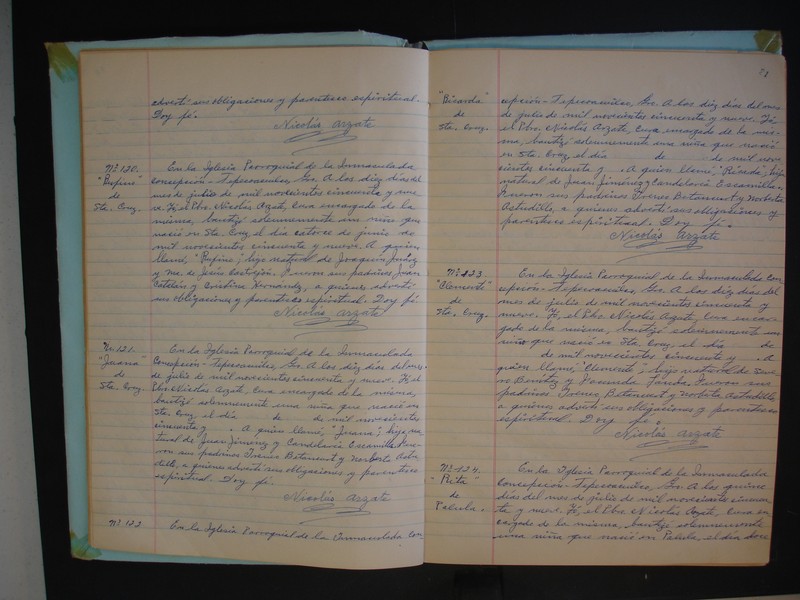 advertí sus obligaciones y parentesco espiritual.
Doy fé.
Nicolás Arzate
Nº 120.
"Rufino"
de
Sta. Cruz.
En la Iglesia Parroquial de la Inmaculada
Concepción - Tepecoacuilco, Gro. A los diez días del
mes de julio de mil novecientos cincuenta y nue-
ve. Yo, el Pbro. Nicolás Arzate, Cura encargado de la
misma, bauticé solemnemente un niño que
nació en Sta. Cruz el día catorce de junio de
mil novecientos cincuenta y nueve. A quien
llamé, "Rufino", hijo natural de Joaquín
y Ma. de Jesús Castrejón. Fueron sus padrinos Juan
Catalán y Cristina Hernández, a quienes advertí
sus obligaciones y parentesco espiritual. Doy fé.
Nicolás Arzate
Nº 121.
"Juana"
de
Sta. Cruz.
En la Iglesia Parroquial de la Inmaculada
Concepción - Tepecoacuilco, Gro. A los diez días del mes
de julio de mil novecientos cincuenta y nueve. Yo, el
Pbro. Nicolás Arzate, Cura encargado de la misma,
bauticé solemnemente una niña que nació en
Sta. Cruz, el día de de mil novecientos
cincuenta y . A quien llamé, "Juana", hija na-
tural de Juan Jiménez y Candelaria Escamilla. Fue-
ron sus padrinos Irineo Betancourt y Norberta Astu-
dillo, a quienes advertí sus obligaciones y parentesco
espiritual. Doy fé.
Nicolás Arzate
Nº 122
En la Iglesia Parroquial de la Inmaculada Con-
"Ricarda"
de
Sta. Cruz.
cepción - Tepecoacuilco, Gro. A los diez días del mes
de julio de mil novecientos cincuenta y nueve. Yó,
el Pbro. Nicolás Arzate, Cura encargado de la mis-
ma, bauticé solemnemente una niña que nació
en Sta. Cruz, el día de de mil nove-
cientos cincuenta y . A quien llamé, "Ricarda", hija
natural de Juan Jiménez y Candelaria Escamilla.
Fueron sus padrinos Irineo Betancourt y Norberta
Astudillo, a quienes advertí sus obligaciones y
parentesco espiritual. Doy fé.
Nicolás Arzate
Nº 123.
"Clemente"
de
Sta. Cruz.
En la Iglesia Parroquial de la Inmaculada Con-
cepción - Tepecoacuilco, Gro. A los diez días del
mes de julio de mil novecientos cincuenta y
nueve. Yó, el Pbro. Nicolás Arzate, Cura encar-
gado de la misma, bauticé solemnemente un
niño que nació en Sta. Cruz, el día de
de mil novecientos cincuenta y . A
quien llamé, "Clemente", hijo natural de
Benítez y Fueron sus
padrinos Irineo Betancourt y Norberta Astudillo,
a quienes advertí sus obligaciones y parentesco
espiritual. Doy fé.
Nicolás Arzate
Nº 124.
"Rita"
de
Palula.
En la Iglesia Parroquial de la Inmaculada
Concepción - Tepecoacuilco, Gro. A los quince
días del mes de julio de mil novecientos cincuen-
ta y nueve. Yó, el Pbro. Nicolás Arzate, Cura en-
cargado de la misma, bauticé solemnemente
una niña que nació en Palula, el día doce